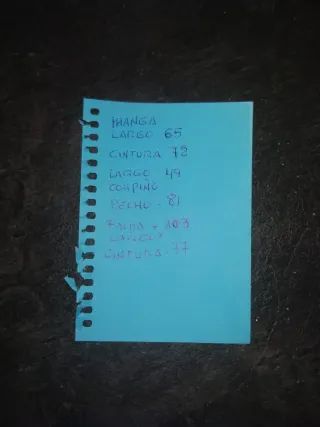 MANGA
LARGO 65
CINTURA 72
LARGO 49
CORPIÑO
PECHO - 81
FALDA - 103
LARGO
CINTURA - 77